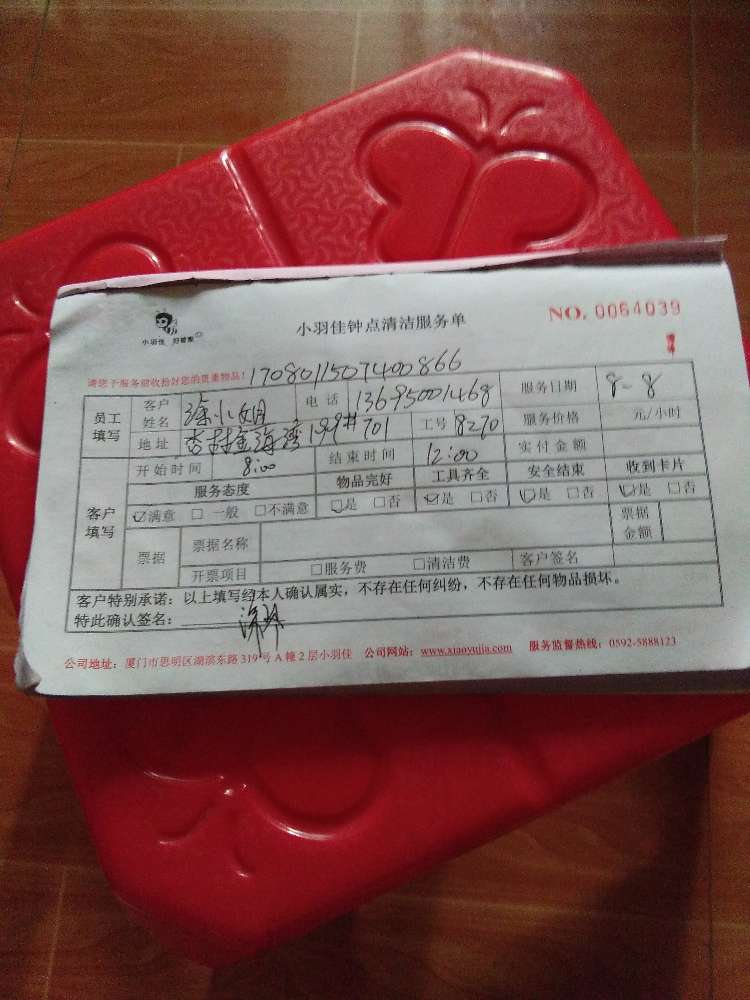 小羽佳 好管家
小羽佳钟点清洁服务单
NO. 0064039
请您予服务前收拾好您的贵重物品！1708011507400866
员工填写 客户姓名 电话 13695001468 服务日期 8-8
地址 杏林金海湾199#701 工号 8270 服务价格 元/小时
开始时间 8:00 结束时间 12:00 实付金额
客户填写 服务态度 物品完好 工具齐全 安全结束 收到卡片
☑满意 □一般 □不满意 ☑是 □否 ☑是 □否 ☑是 □否 ☑是 □否
票据 票据名称 票据金额
开票项目 □服务费 □清洁费 客户签名
客户特别承诺：以上填写经本人确认属实，不存在任何纠纷，不存在任何物品损坏。
特此确认签名：
公司地址：厦门市思明区湖滨东路319号A幢2层小羽佳 公司网站：www.xiaoyujia.com 服务监督热线：0592-5888123